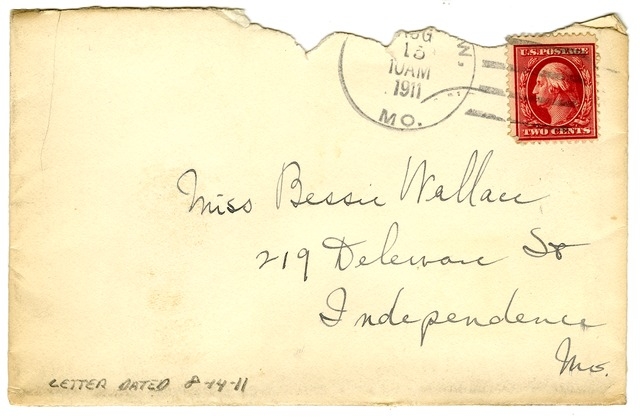 AUG
15
10AM
1911
MO.
U.S. POSTAGE
TWO CENTS
Miss Bessie Wallace
219 Deleware St
Independence
Mo.
LETTER DATED 8-14-11